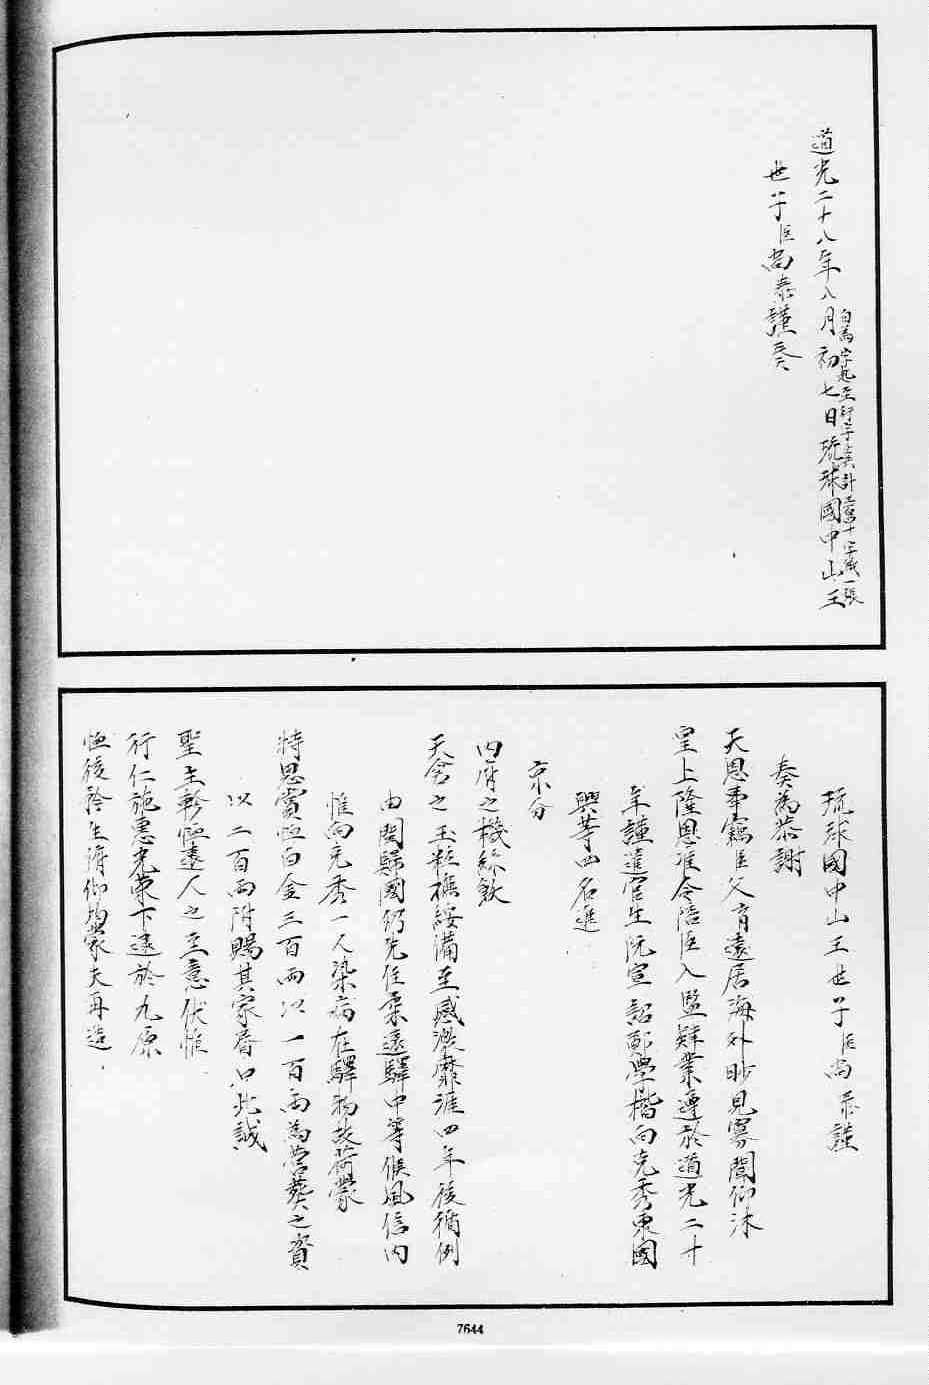 道光二十八年八月初七日琉球國中山王
自為字起至行字共計字紙一張
世子臣尚泰謹奏
琉球國中山王世子臣尚泰謹
奏為恭謝
天恩事竊臣父育遠居海外眇見寡聞仰沐
皇上隆恩准令陪臣入監肄業遵於道光二十
年謹遣官生阮宣詔鄭學楷向克秀東國
興等四名進
京分
內府之機絲飲
天倉之玉粒撫綏備至感浹靡涯四年後循例
由閩歸國仍先在柔遠驛中等候風信內
惟向克秀一人染病在驛物故荷蒙
特恩賞恤白金三百兩以一百兩為營葬之資
以二百兩附賜其家眷口此誠
聖主軫恤遠人之至意伏惟
行仁施惠光榮下逮於九原
恤後矜生俯仰均蒙夫再造
7644